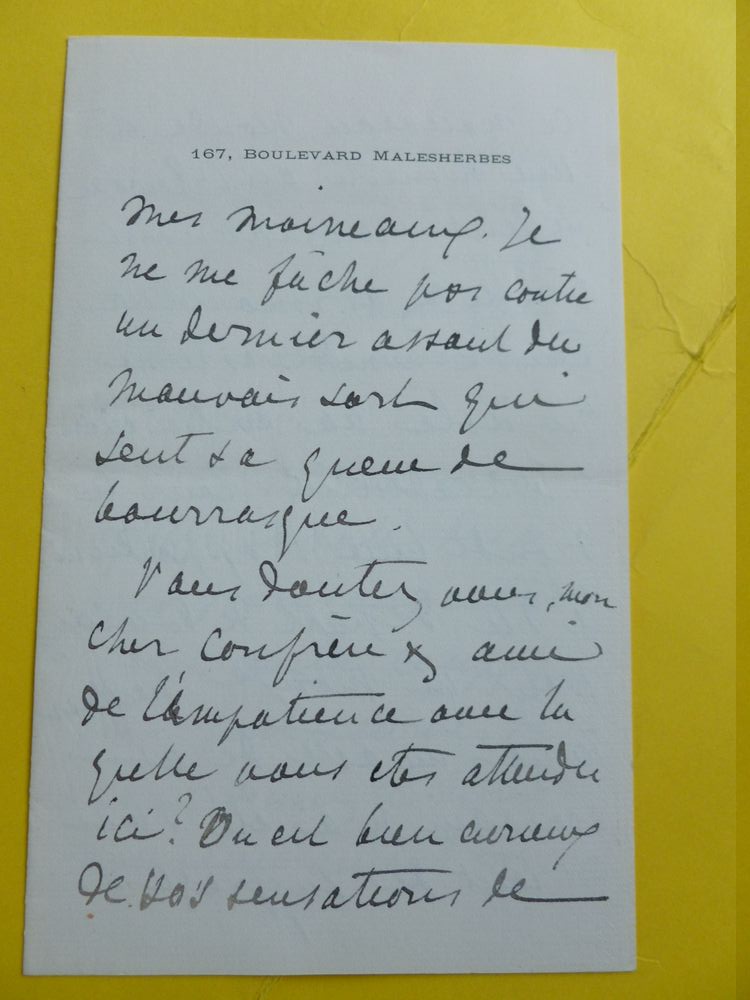 167, BOULEVARD MALESHERBES
mes moineaux. Je
ne me fâche pas contre
un dernier assaut du
mauvais sort qui
sent sa queue de
bourrasque.
Vous doutez vous, mon
cher confrère & ami
de l'impatience avec la
quelle vous etes attendu
ici? On est bien curieux
de vos sensations de